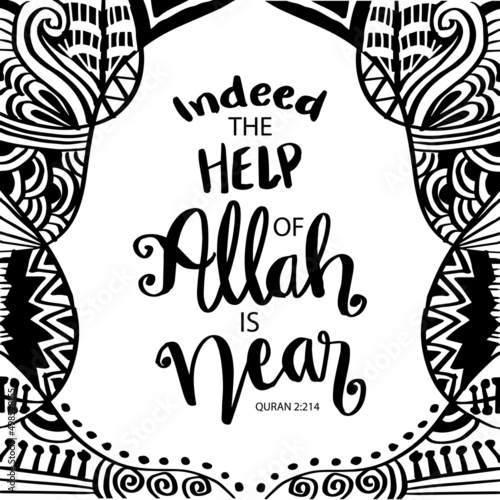 Indeed
THE
HELP
OF
Allah
IS
Near
QURAN 2:214